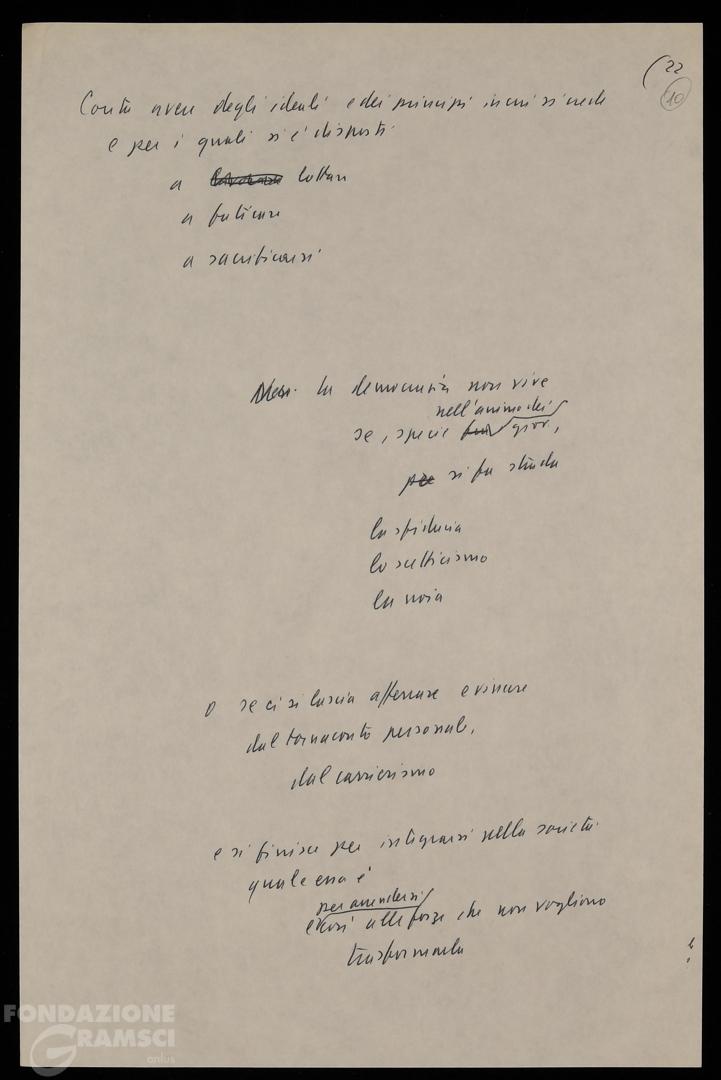 22
10
Conta avere degli ideali e dei principi in cui si crede
e per i quali si è disposti
a lottare
a faticare
a sacrificarsi
la democrazia non vive
nell'animo dei
se, specie giov,
si fa strada
la sfiducia
lo scetticismo
la noia
o se ci si lascia afferrare e vincere
dal tornaconto personale,
dal carrierismo
e si finisce per integrarsi nella società
quale essa è
per arrendersi
e così alle forze che non vogliono
trasformarla
FONDAZIONE
GRAMSCI
onlus